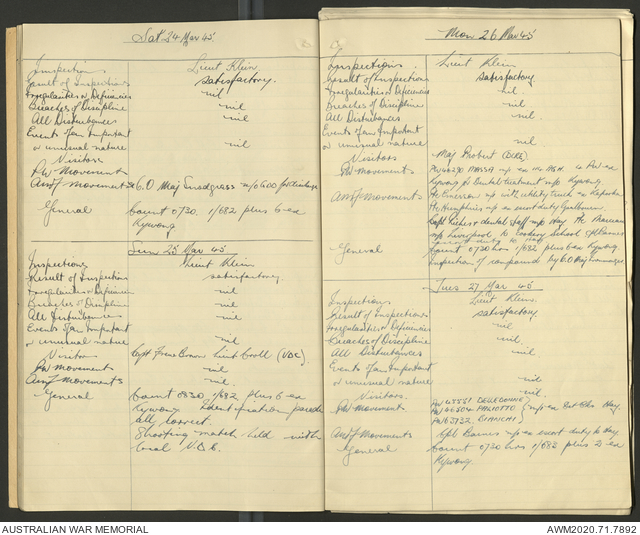 Sat 24 Mar 45
Inspections Lieut Klein
Result of Inspections satisfactory.
Irregularities or Deficiencies nil
Breaches of Discipline nil
All Disturbances nil
Events of an Important
or unusual nature nil
Visitors
PW Movements nil
Ausf Movements C.O. Maj Snodgrass
General Count 0730. 1/682 plus 6 ex
Kywong
Sun 25 Mar 45
Inspections Lieut Klein
Result of Inspections satisfactory
Irregularities or Deficiencies nil
Breaches of Discipline nil
All Disturbances nil
Events of an Important
or unusual nature nil
Visitors Capt Brown Lieut (VDC).
PW Movements nil
Ausf Movements nil.
General Count 0830. 1/682 plus 6 ex
Kywong Identification parade
all correct.
Shooting match held with
local V.D.C.
Mon 26 Mar 45
Inspections. Lieut Klein
Result of Inspections satisfactory.
Irregularities or Deficiencies nil.
Breaches of Discipline nil
All Disturbances nil.
Events of an Important
or unusual nature nil
Visitors Maj
PW Movements PW46290 MASSA ex AGH. 6 PW ex
Kywong to Dental treatment Kywong
Ausf Movements with utility truck ex
Humphries ex escort duty
Capt dental staff Hay.
Liverpool to Cookery School
General count 0730 hrs 1/682 plus 6 ex Kywong.
Inspection of compounds by C.O. Maj Snodgrass
Tues 27 Mar 45
Inspections Lieut Klein.
Result of Inspections satisfactory
Irregularities or Deficiencies nil
Breaches of Discipline nil.
All Disturbances nil.
Events of an Important
or unusual nature nil
Visitors. nil
PW Movements
PW BIANCHI
Ausf Movements Cpl Barnes ex escort duty to Hay.
General Count 0730 hrs 1/682 plus 2 ex
Kywong
AUSTRALIAN WAR MEMORIAL AWM2020.71.7892